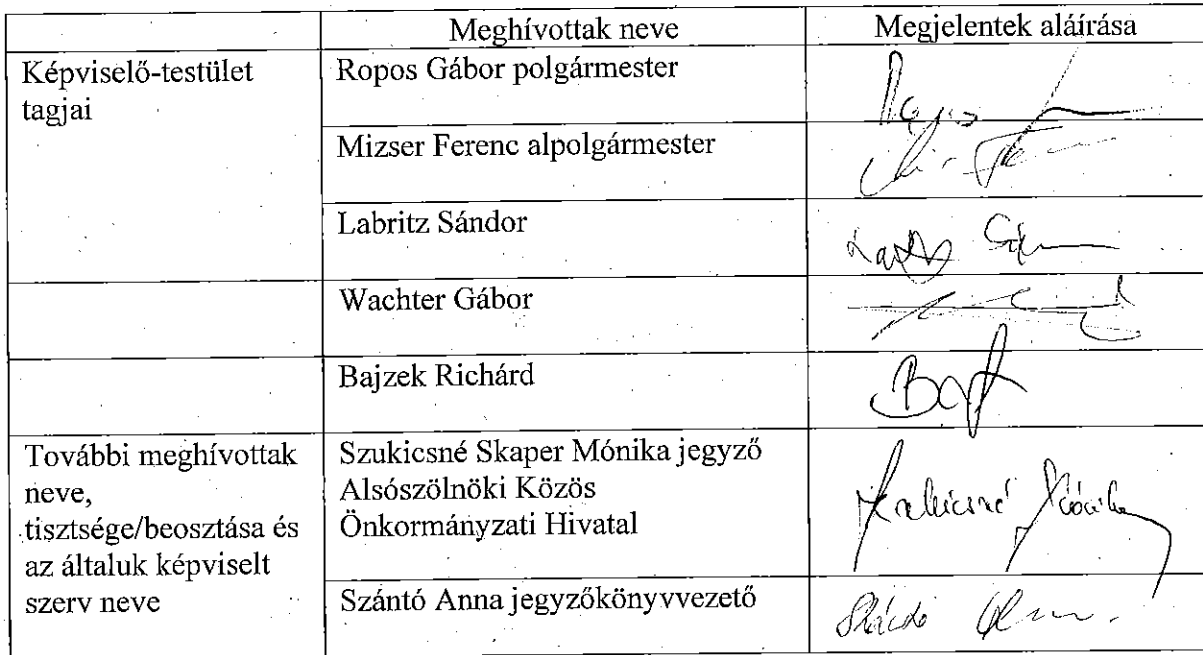 Meghívottak neve
Megjelentek aláírása
Képviselő-testület
tagjai
Ropos Gábor polgármester
Mizser Ferenc alpolgármester
Labritz Sándor
Wachter Gábor
Bajzek Richárd
További meghívottak
neve,
tisztsége/beosztása és
az általuk képviselt
szerv neve
Szukicsné Skaper Mónika jegyző
Alsószölnöki Közös
Önkormányzati Hivatal
Szántó Anna jegyzőkönyvvezető